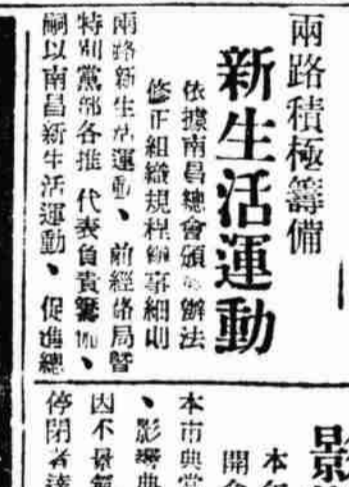 兩路積極籌備
新生活運動
依據南昌總會頒辦法
修正組織規程辦事細則
兩路新生活運動、前經路局暨
特別黨部各推代表負責籌備、
嗣以南昌新生活運動、促進總
影
本
開會
本市典當
、影響典
因不景氣
停閉者達